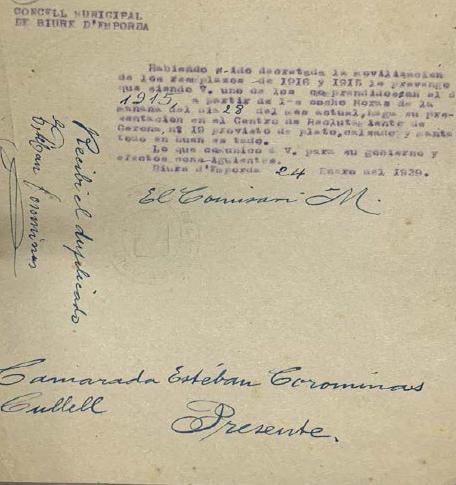 CONCELL MUNICIPAL
DE BIURE D'EMPORDA
Habiendo sido decretada la movilizacion
de los reemplazos de 1916 y 1915 le prevengo
que siendo V. uno de los comprendidos en el d
1915, a partir de las ocho horas de la
mañana del dia 28 del mes actual, haga su pre-
sentacion en el Centro de Reclutamiento de
Gerona, nº 19 provisto de plato, calzado y manta
todo en buen estado.
Lo que comunico a V. para su gobierno y
efectos consiguientes.
Biure d'Emporda 24 Enero del 1939.
El Comisari M.
Recibi el duplicado.
Estéban Corominas
Camarada Estéban Corominas
Cullell
Presente.